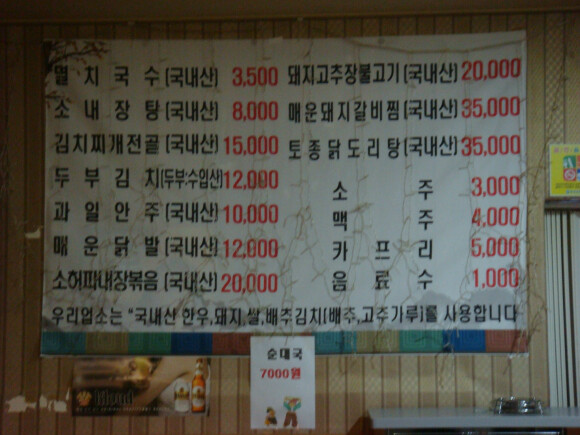 멸치국수(국내산) 3,500
소내장탕(국내산) 8,000
김치찌개전골(국내산) 15,000
두부김치(두부:수입산) 12,000
과일안주(국내산) 10,000
매운닭발(국내산) 12,000
소허파내장볶음(국내산) 20,000
돼지고추장불고기(국내산) 20,000
매운돼지갈비찜(국내산) 35,000
토종닭도리탕(국내산) 35,000
소주 3,000
맥주 4,000
카프리 5,000
음료수 1,000
우리업소는 "국내산 한우,돼지,쌀,배추김치[배추,고추가루]를 사용합니다
순대국
7000원